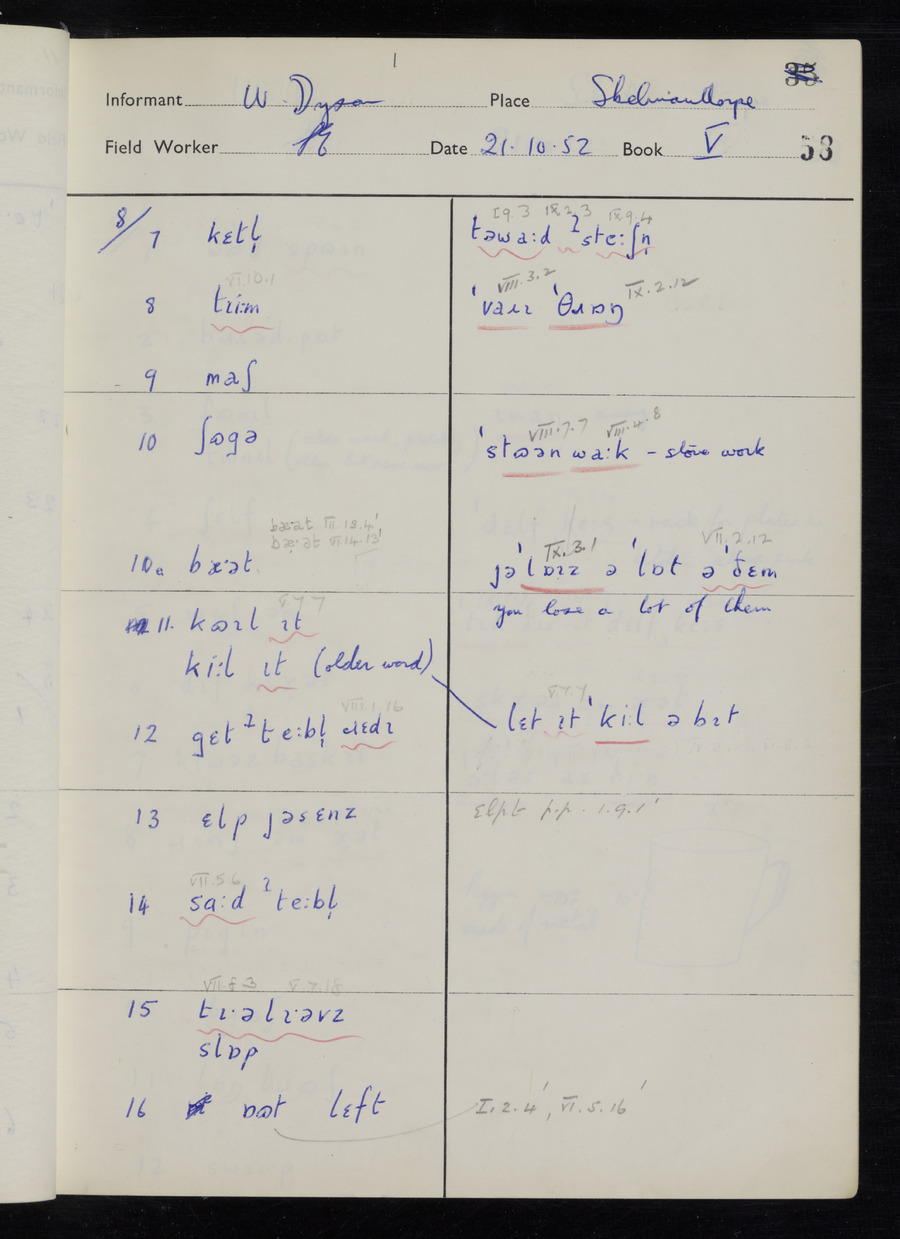 Informant W. Dyson Place Skelmanthorpe
Field Worker Date 21.10.52 Book V 58
8/7 kɛtl̩
I.9.3 IX.2.3 IX.9.4
təwa:d ʔste:ʃn̩
VI.10.1
8 tɹi:m
VIII.3.2 IX.2.12
ˈvaɪɪ ˈθɹɒŋ
9 maʃ
10 ʃʊgə
VIII.7.7 VIII.4.8
ˈstʊən wa:k – stone work
bæ·at VI.13.4'
bæ·ət VI.14.13'
10a bæ·ət
IX.3.1 VII.2.12
jəˈlɒɪz ə ˈlɒt əˈðɛm
you lose a lot of them
V.7.7
11. kʊɪl ɪt
ki:l ɪt (older word)
VIII.1.16
12 gɛt ʔte:bl̩ ɹɛdɪ
V.7.7
lɛt ɪt ˈki:l ə bɪt
13 ɛlp jəsɛnz
ɛlpt p.p. 1.9.1'
VII.5.6
14 sa:d ʔte:bl̩
VII.8.3 V.7.18
15 tɹ·ə lɪ·əvz
slɒp
16 ɒət lɛft
I.2.4', VI.5.16'